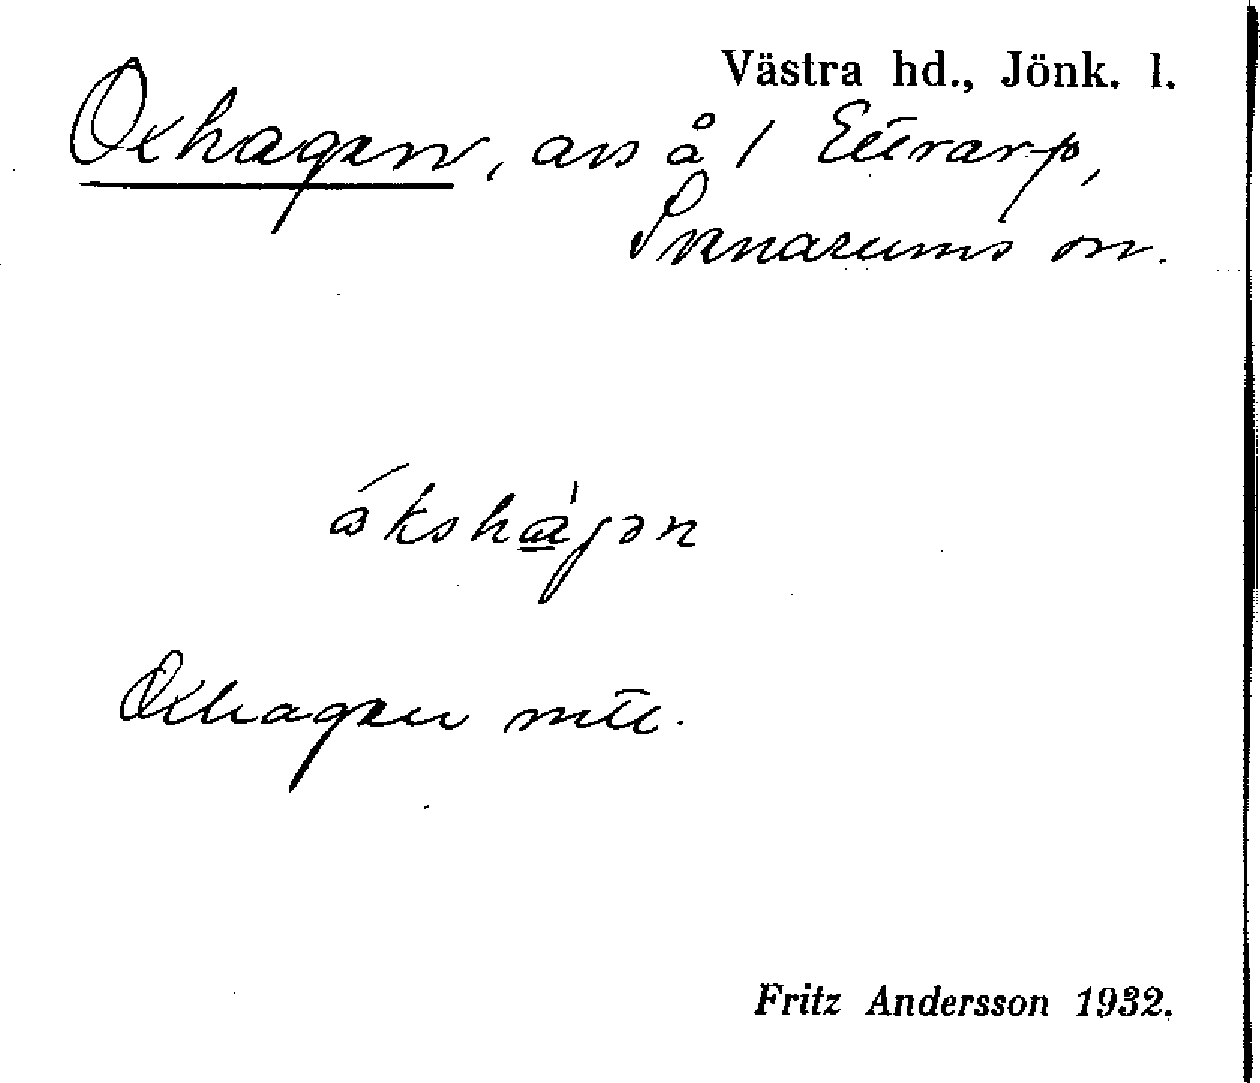 Västra hd., Jönk. l.
Oxhagen, avs å 1 Ettrarp,
Svenarums sn.
ákshágən
Oxhagen mtl.
Fritz Andersson 1932.